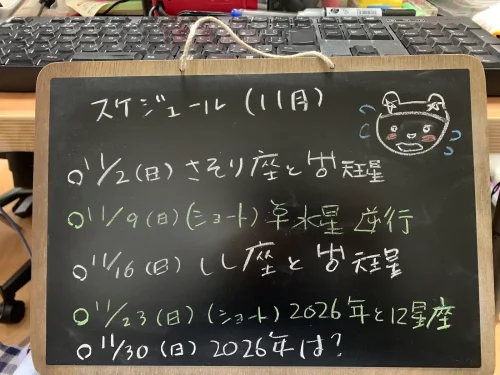 スケジュール (11月)
○11/2(日) さそり座と 天王星
○11/9(日)(ショート) 水星 逆行
○11/16(日) しし座と 天王星
○11/23(日)(ショート) 2026年と12星座
○11/30(日) 2026年は?